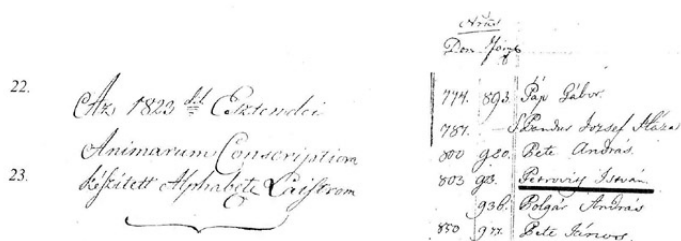 22.
Az 1823 dik Esztendei
Animarum Conscriptiora
23.
készített Alphabeta Laistrom
Nrus
Dom.
774. 893. Páp Gábor.
787. Pandur Jozsef Háza
800 920. Pete András.
803 93. Petrovis István
936. Polgár András
850 977. Pete János.